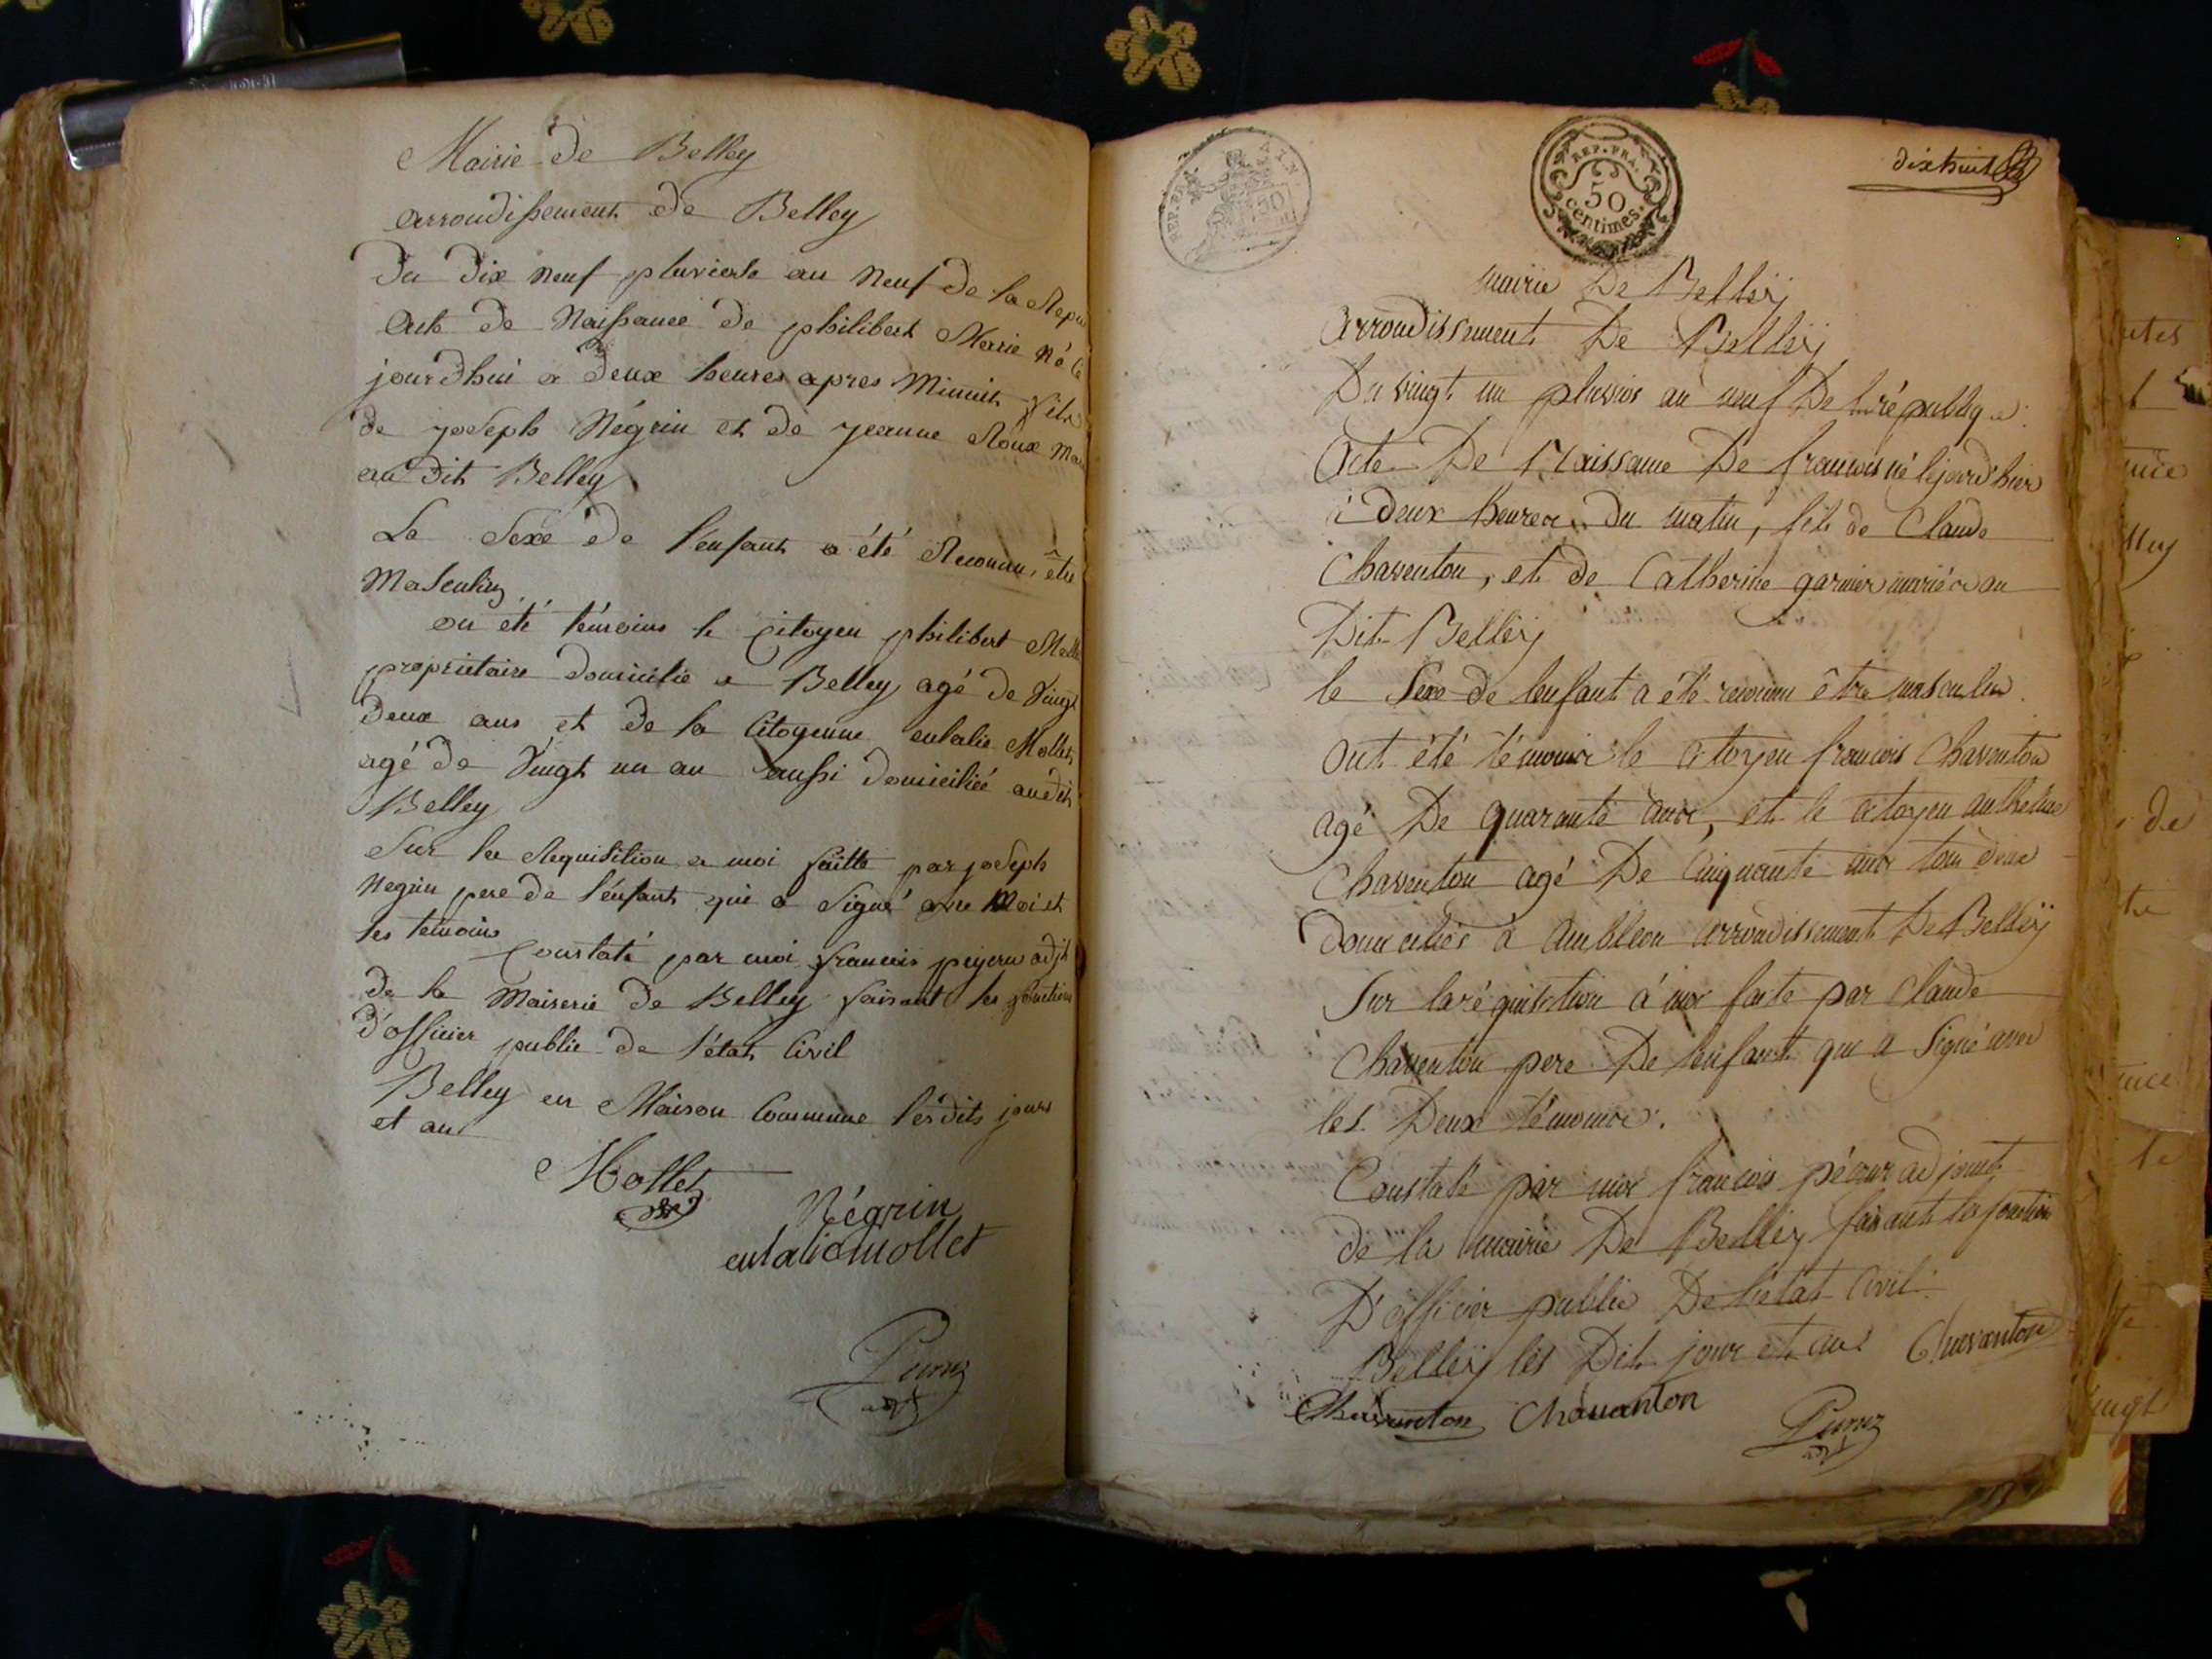 Mairie de Belley
arrondissement de Belley
Du dix neuf pluviose an neuf de la Repu
Acte de Naissance de philibert Marie né le
jourdhui a deux heures apres Minuit fils
de joseph Négrin et de jeanne Roux Ma
au dit Belley
Le Sexe de l'enfant a été Reconnu être
Masculin
on été témoins le Citoyen philibert Molle
propriétaire domicilié a Belley agé de Vingt
deux ans et de la Citoyenne eulalie Mollet
agé de Vingt un an aussi domiciliée audit
Belley
Sur la Requisition a moi faitte par joseph
Negrin pere de l'enfant qui a Signé avec Moi et
les témoins
Constaté par moi francois adjt
de la Mairerie de Belley faisant les fonctions
d'officier public de l'état Civil
Belley en Maison Commune lesdits jours
et an
Mollet
Négrin
eulalie mollet
dix huit
REP. FRA.
50
centimes.
mairie De Belleÿ
arrondissement De Belleÿ
Du vingt un pluvios an neuf De la république
Acte De Naissance De francois né lejourd'huir
à deux heures du matin, fils de Claude
Chaventon, et de Catherine garnier mariés au
Dit Belleÿ
le Sexe de lenfant a été reconnu être masculin
ont été témoins le citoyen francois Chaventon
agé De quarante ans, et le citoyen anthelme
Chaventon agé De Cinquante ans tous deux
domiciliés à Ambleon arrondissement De Belleÿ
Sur la réquisition à moi faite par Claude
Chaventon pere De lenfant qui a Signé avec
les Deux témoins.
Constaté par moi francois adjoint
de la mairie De Belleÿ faisant les fonction
D'officier public De l'état Civil
Belleÿ les Dit jour et an Chavanton
Chavanton Chavanton